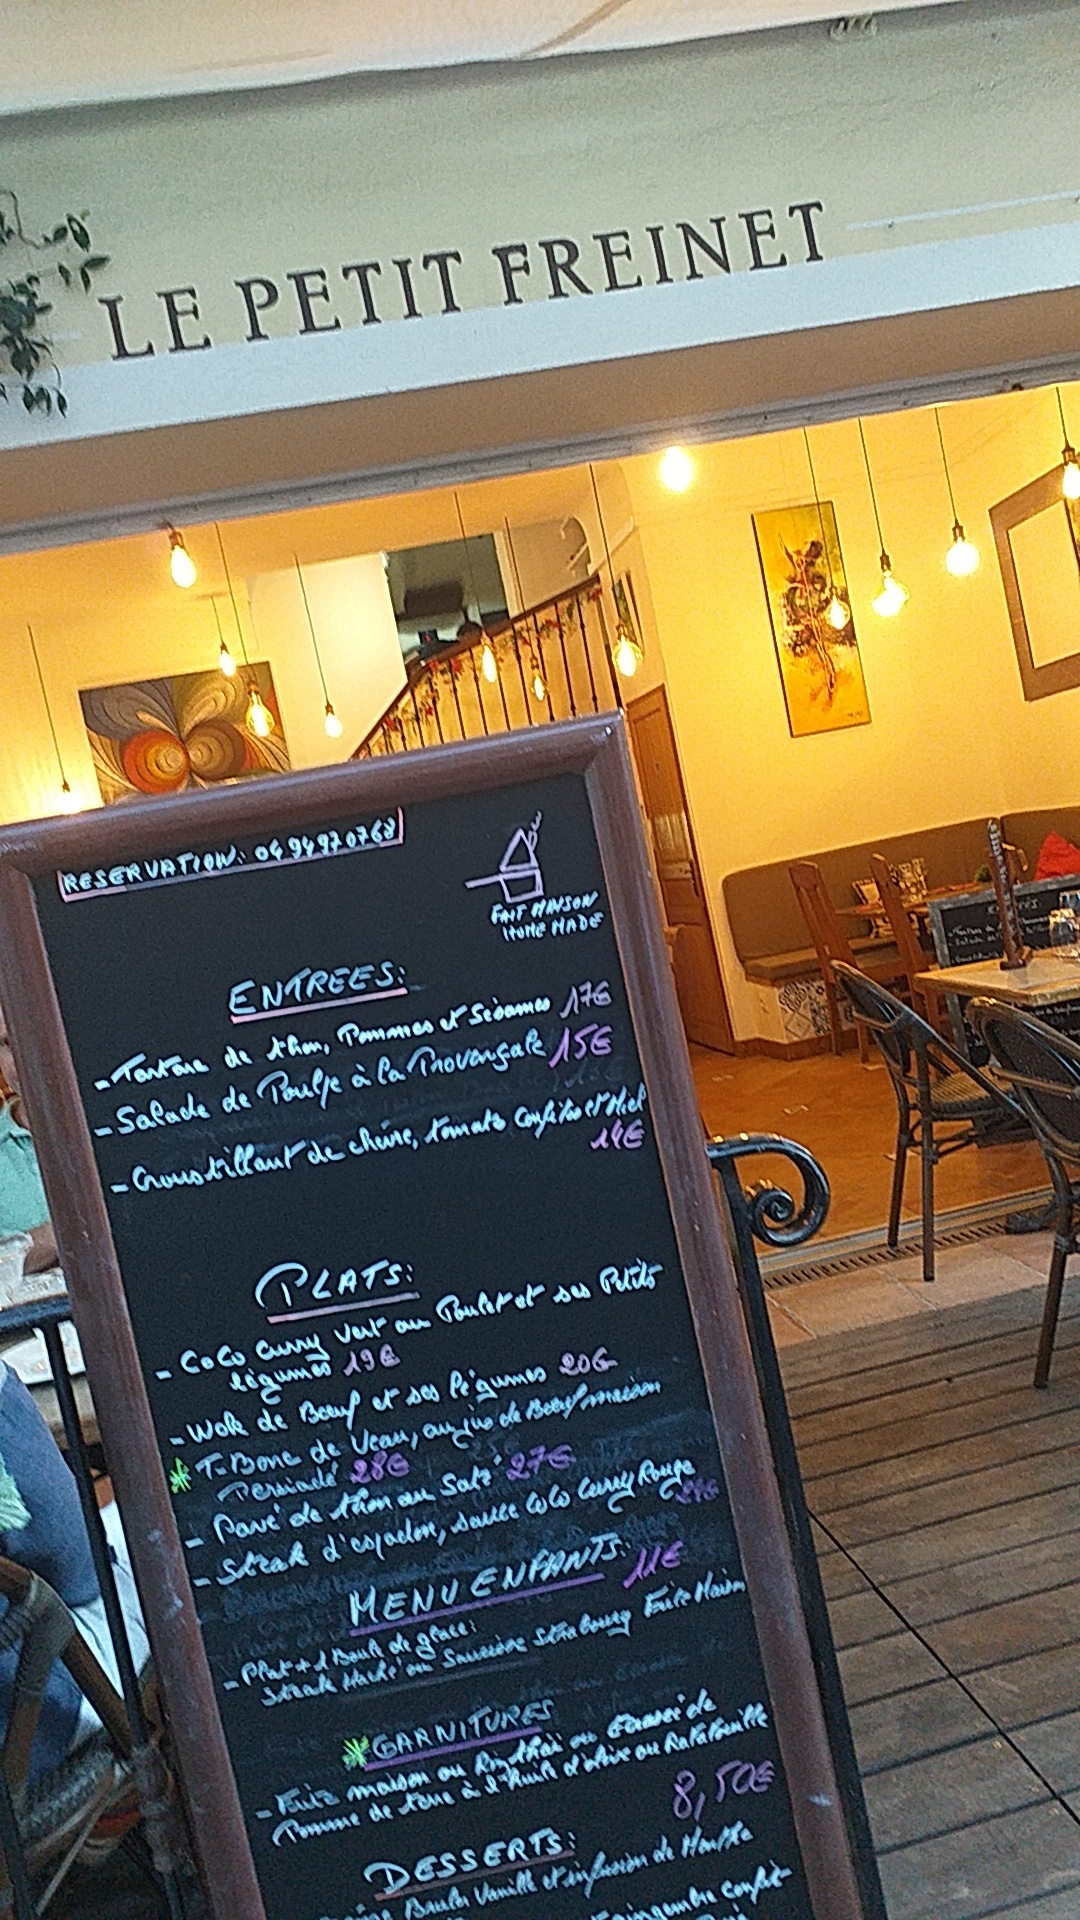 LE PETIT FREINET
RESERVATION: 04 94970768
FAIT MAISON
HOME MADE
ENTREES:
- Tartare de thon, Pommes et Sésames 17€
- Salade de Poulpe à la Provençale 15€
- Croustillant de chèvre, tomate confites et Miel
14€
PLATS:
- CoCo Curry Vert au Poulet et ses Petits
légumes 19€
- Wok de Bœuf et ses légumes 20€
* T-Bone de Veau, au jus de Bœuf maison
Persiadé 28€
- Pavé de thon au Saté 27€
- Steak d'espadon, sauce CoCo Curry Rouge
MENU ENFANTS: 11€
- Plat + 1 Boule de glace:
Steak Haché ou Saucisse Strasbourg Frite Maison
*GARNITURES
- Frites maison ou Riz thaï ou Écrasé de
Pomme de terre à l'huile d'olive ou Ratatouille
8,50€
DESSERTS:
Vanille et infusion de Menthe
Gingembre confit